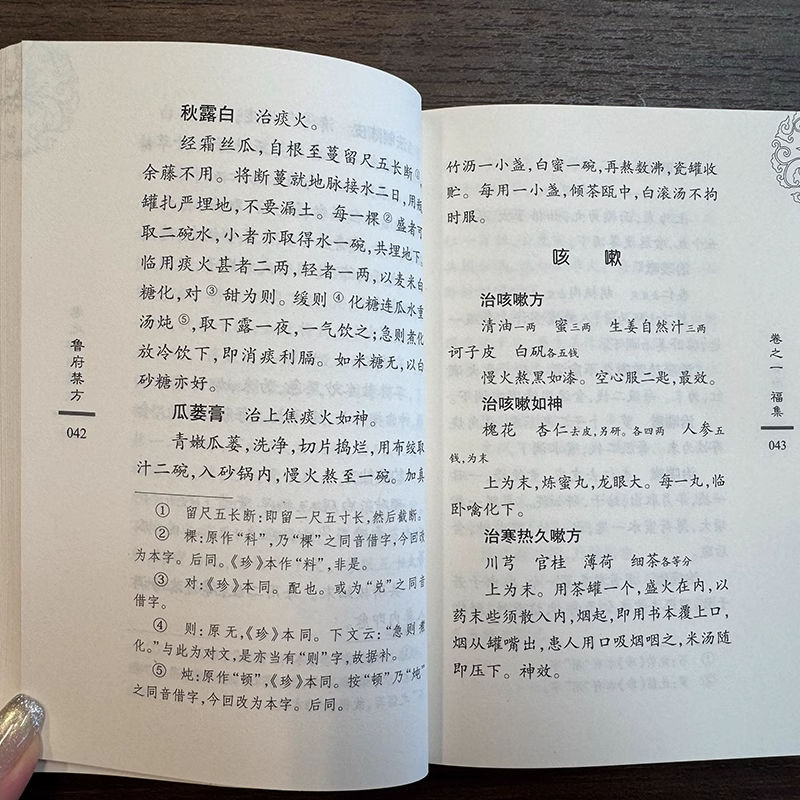 秋露白　治痰火。
经霜丝瓜，自根至蔓留尺五长断①，
余藤不用。将断蔓就地脉接水二日，用瓶
罐扎严埋地，不要漏土。每一棵②盛者可
取二碗水，小者亦取得水一碗，共埋地下。
临用痰火甚者二两，轻者一两，以麦米白
糖化，对③甜为则。缓则④化糖连瓜水重
汤炖⑤，取下露一夜，一气饮之；急则煮化
放冷饮下，即消痰利膈。如米糖无，以白
砂糖亦好。
瓜蒌膏　治上焦痰火如神。
青嫩瓜蒌，洗净，切片捣烂，用布绞取
汁二碗，入砂锅内，慢火熬至一碗。加真
①　留尺五长断：即留一尺五寸长，然后截断。
②　棵：原作“科”，乃“棵”之同音借字，今回改
为本字。后同。《珍》本作“料”，非是。
③　对：《珍》本同。配也。或为“兑”之同音
借字。
④　则：原无，《珍》本同。下文云：“急则煮
化。”与此为对文，是亦当有“则”字，故据补。
⑤　炖：原作“顿”，《珍》本同。按“顿”乃“炖”
之同音借字，今回改为本字。后同。
鲁府禁方
042
竹沥一小盏，白蜜一碗，再熬数沸，瓷罐收
贮。每用一小盏，倾茶瓯中，白滚汤不拘
时服。
咳嗽
治咳嗽方
清油一两　蜜三两　生姜自然汁三两
诃子皮　白矾各五钱
慢火熬黑如漆。空心服二匙，最效。
治咳嗽如神
槐花　杏仁去皮，另研。各四两　人参五
钱，为末
上为末，炼蜜丸，龙眼大。每一丸，临
卧噙化下。
治寒热久嗽方
川芎　官桂　薄荷　细茶各等分
上为末。用茶罐一个，盛火在内，以
药末些须散入内，烟起，即用书本覆上口，
烟从罐嘴出，患人用口吸烟咽之，米汤随
即压下。神效。
卷之一　福集
043